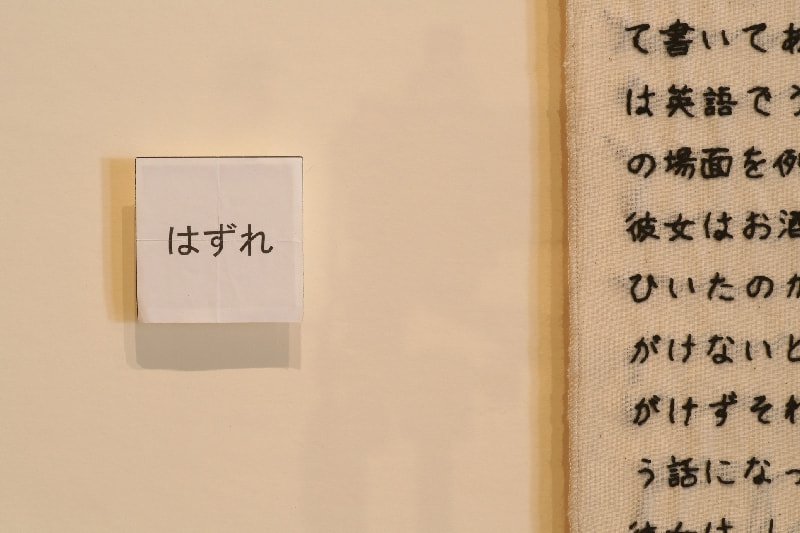 はずれ
て書いてあ
は英語でう
の場面を例
彼女はお酒
ひいたのか
がけないと
がけずそれ
う話になっ
彼女は